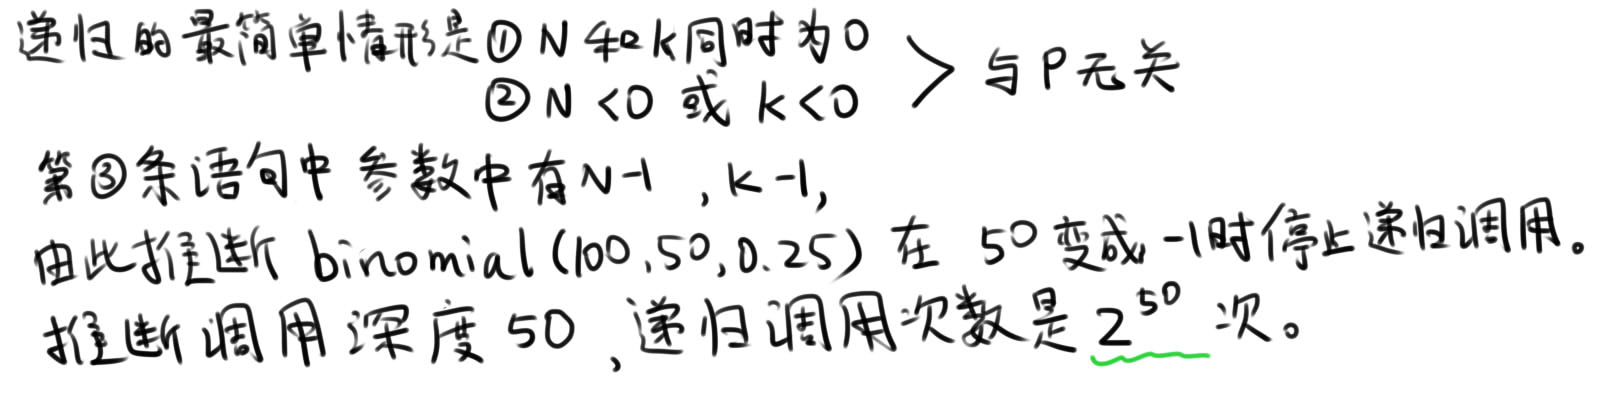 递归的最简单情形是① N 和 k 同时为 0
② N < 0 或 k < 0 > 与 P 无关
第③条语句中 参数中有 N-1 , k-1,
由此推断 binomial(100,50,0.25) 在 50 变成 -1时停止递归调用。
推断调用深度 50 ,递归调用次数是 2^50 次。